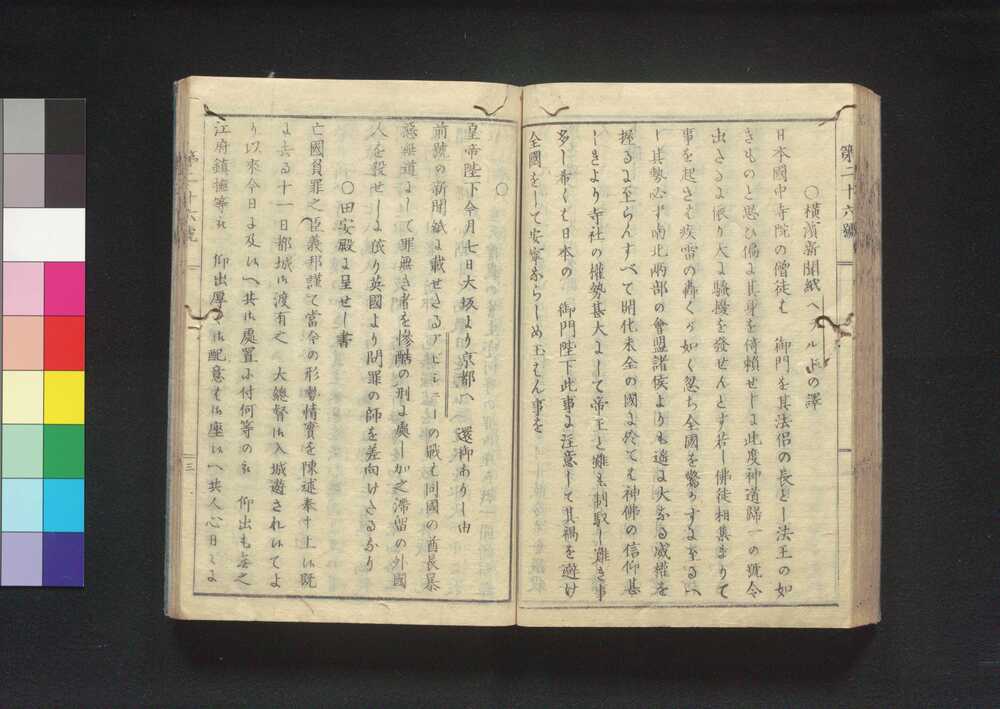 第二十六號
○横濱新聞紙ヘラルドの譯
日本國中寺院の僧徒も 御門を其法侶の長とし法王の如
きものと思ひ偏よ其身を倚頼せしよ此度神道歸一の號令
出さるよ依り大よ騒擾を發せんとす若し佛徒相集まりて
事を起さむ疾雷の轟くが如く忽ち全國を驚かすよ至るべ
し其勢必ず南北兩部の會盟諸侯よりも遙よ大なる威權を
握るよ至らんすべて開化未全の國よ於ても神佛の信仰甚
しきより寺社の權勢甚大よして帝王と雖も制馭し難き事
多し希くも日本の 御門陛下此事よ注意して其禍を避け
全國をして安寧ならしめ玉はん事を
○
皇帝陛下今月七日大坂より京都へ 還御ありし由
前號の新聞紙よ載せたるアビシニーの戰も同國の酋長暴
惡無道よして罪無き者を慘酷の刑よ處し加之滞留の外國
人を殺せしよ依り英國より問罪の師を差向けたるなり
○田安殿よ呈せし書
亡國負罪之臣義邦謹て當今の形勢情實を陳述奉十上候既
よ去る十一日都城御渡有之 大總督御入城遊されはてよ
り以來今日よ及はへ共御處置ふ付何等の 仰出も無之
江府鎮撫等 仰出厚く御配意も御座候へ共人心日々よ
第二十六號
三